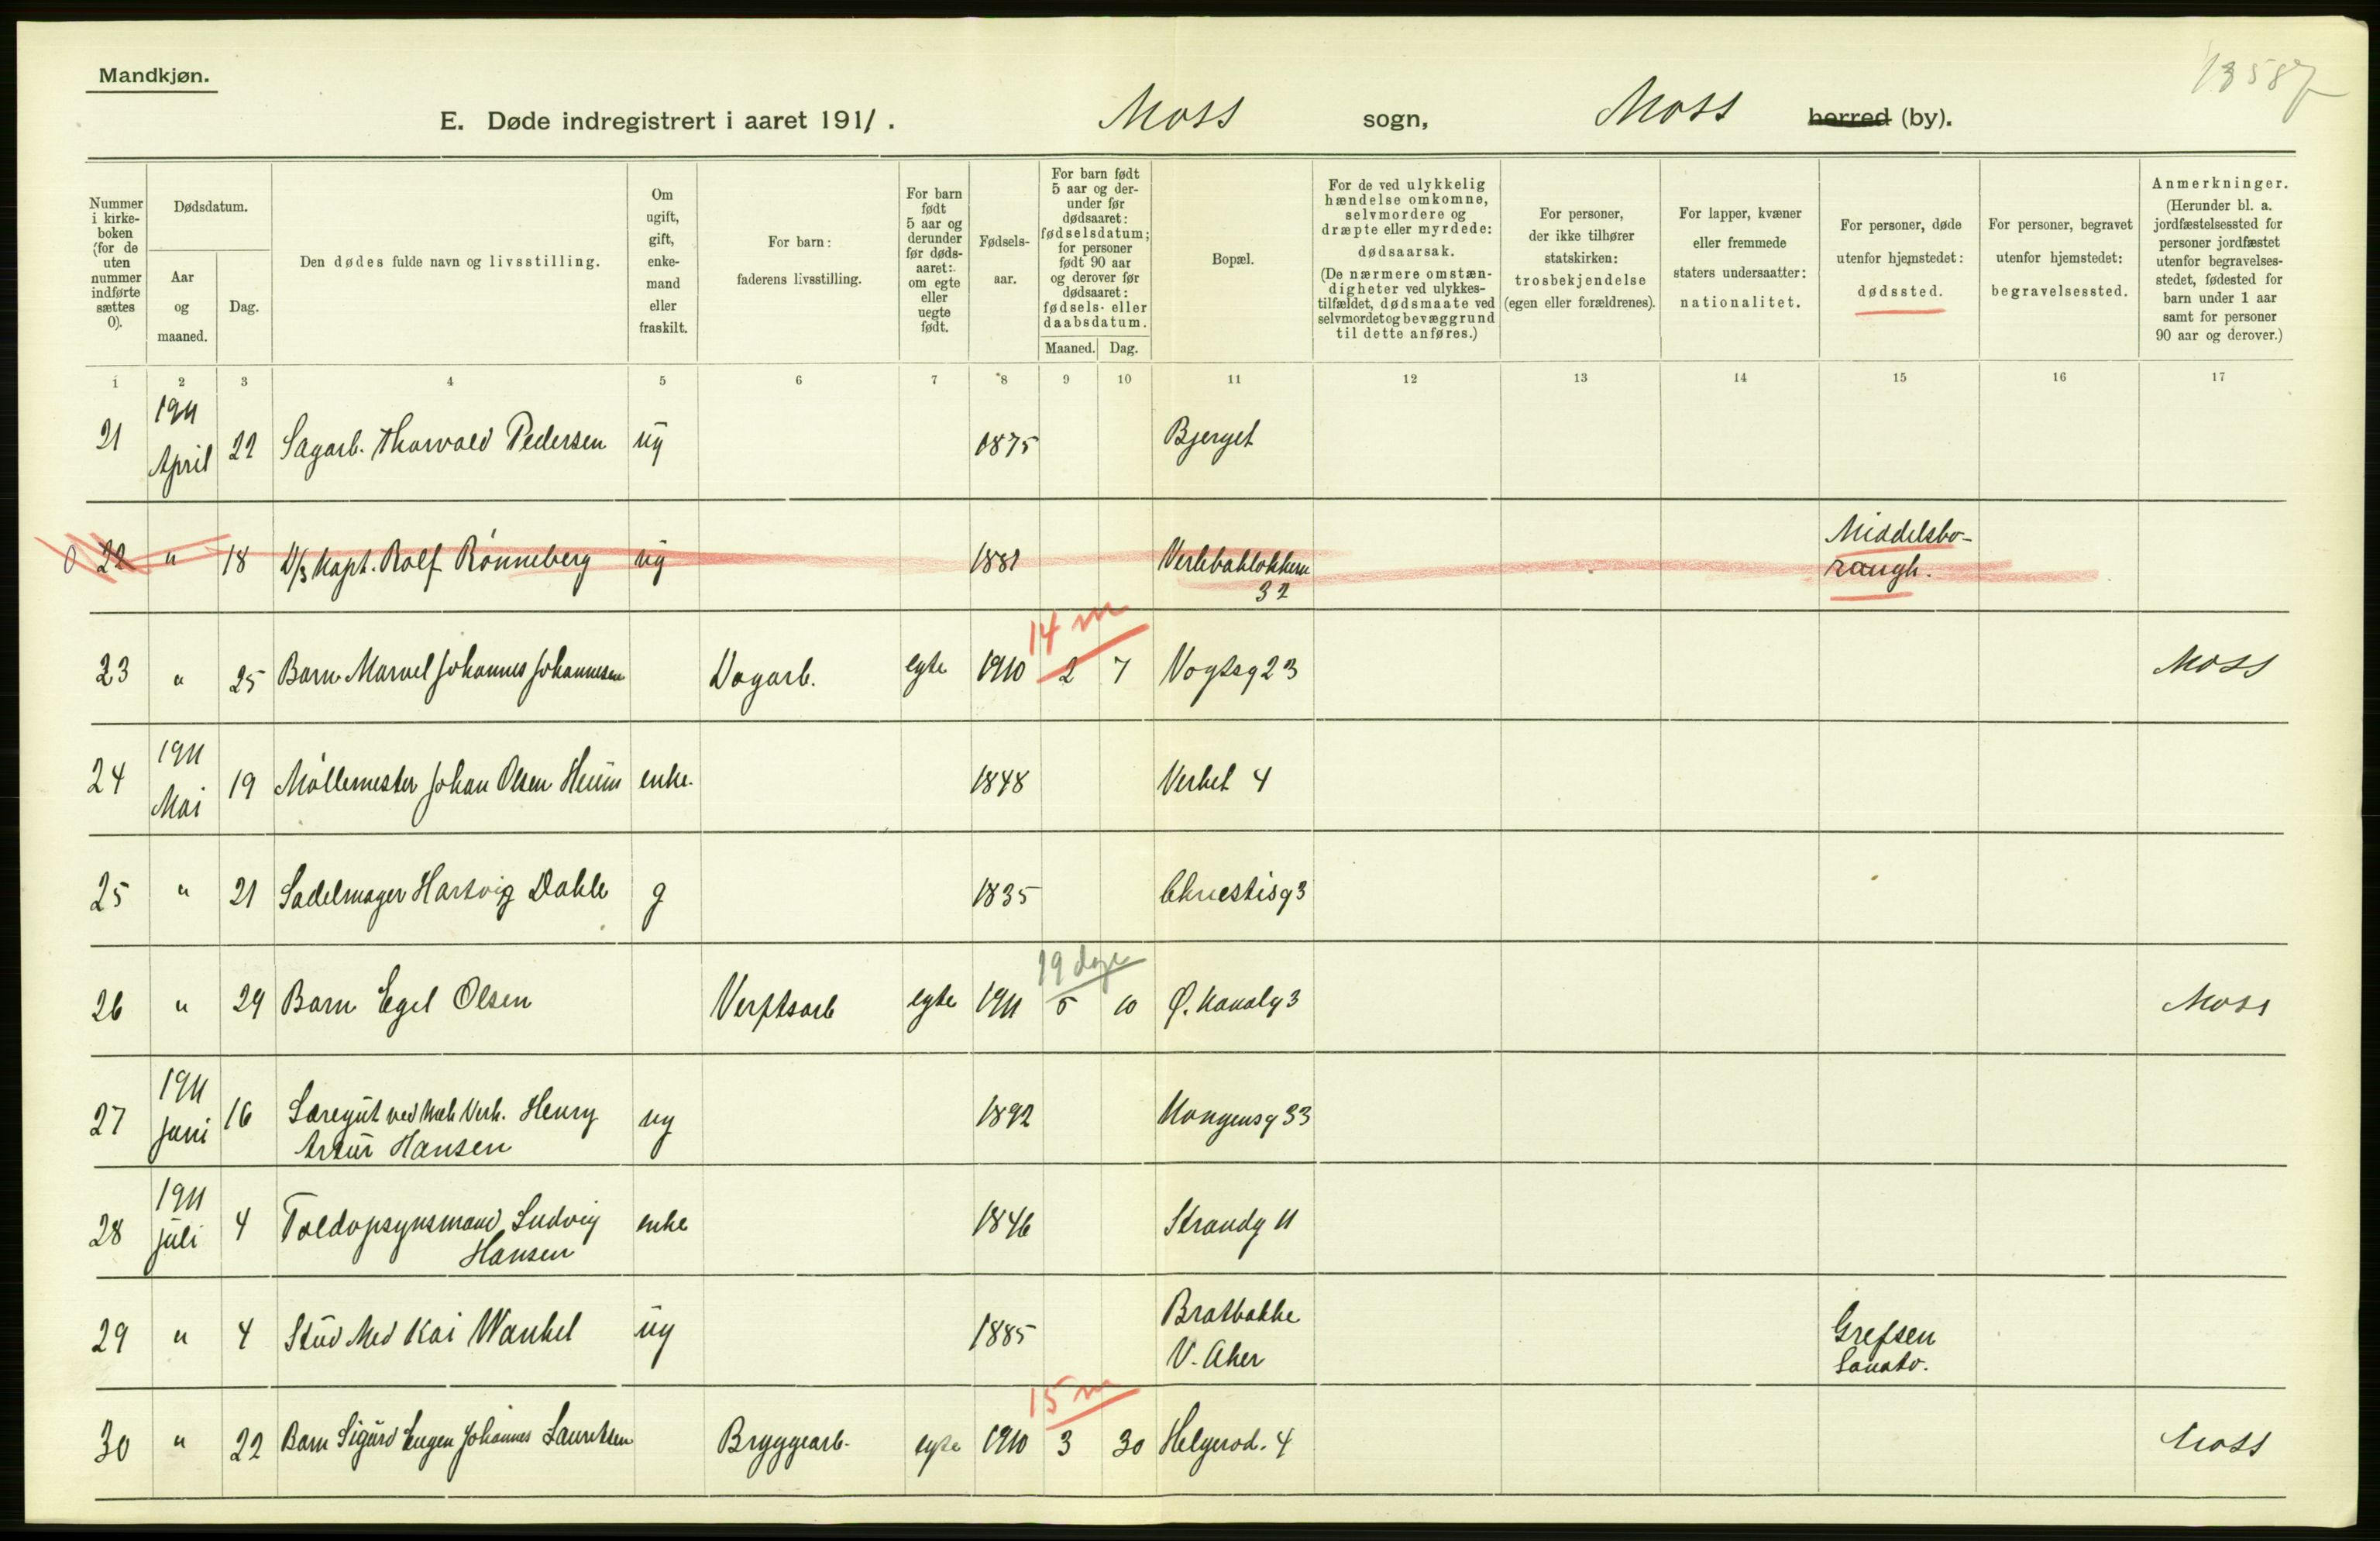 Mandkjøn.
13587
E. Døde indregistrert i aaret 1911. Moss sogn, Moss herred (by).
Nummer i kirkeboken (for de uten nummer indførte sættes 0).
Dødsdatum.
Aar og maaned.
Dag.
Den dødes fulde navn og livsstilling.
Om ugift, gift, enkemand eller fraskilt.
For barn: faderens livsstilling.
For barn født 5 aar og derunder før dødsaaret: om egte eller uegte født.
Fødselsaar.
For barn født 5 aar og derunder før dødsaaret: fødselsdatum; for personer født 90 aar og derover før dødsaaret: fødsels- eller daabsdatum.
Maaned. Dag.
Bopæl.
For de ved ulykkelig hændelse omkomne, selvmordere og dræpte eller myrdede: dødsaarsak. (De nærmere omstændigheter ved ulykkestilfældet, dødsmaate ved selvmordet og bevæggrund til dette anføres.)
For personer, der ikke tilhører statskirken: trosbekjendelse (egen eller forældrenes).
For lapper, kvæner eller fremmede staters undersaatter: nationalitet.
For personer, døde utenfor hjemstedet: dødssted.
For personer, begravet utenfor hjemstedet: begravelsessted.
Anmerkninger. (Herunder bl. a. jordfæstelsessted for personer jordfæstet utenfor begravelsesstedet, fødested for barn under 1 aar samt for personer 90 aar og derover.)
1 2 3 4 5 6 7 8 9 10 11 12 13 14 15 16 17
21 1911 April 22 Sagarb. Thorvald Pedersen ug 1875 Bjerget
0 22 " 18 D/s Kapt. Rolf Rønneberg ug 1881 32 Middelsborough.
14 m
23 " 25 Barn Johannes Johannesen Dagarb. egte 1910 2 7 Vogtsg 23 Moss
24 1911 Mai 19 Møllemester Johan Olsen enke. 1848 Verket 4
25 " 21 Sadelmager Hartvig Dahle g 1835
19 dage
26 " 29 Barn Egil Olsen Verftsarb egte 1911 5 10 Ø. Kanalg 3 Moss
27 1911 Juni 16 Læregut ved Mek Verk. Henry Artur Hansen ug 1892 Kongensg 33
28 1911 Juli 4 Toldopsynsmand Ludvig Hansen enke 1846 Strandg 11
29 " 4 Stud Med Kai Wankel ug 1885 Bratbakke V. Aker Grefsen Sanato.
15 m
30 " 22 Barn Sigurd Eugen Johannes Lauritsen Bryggearb. egte 1910 3 30 Helgerød. 4 Moss